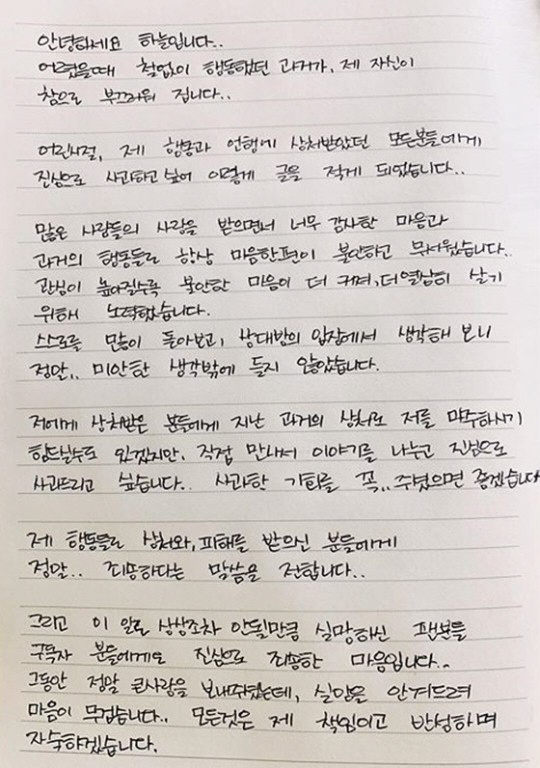 안녕하세요 하늘입니다..
어렸을때 철없이 행동했던 과거가, 제 자신이
참으로 부끄러워 집니다..
어린시절, 제 행동과 언행에 상처받았던 모든분들에게
진심으로 사과하고 싶어 이렇게 글을 적게 되었습니다..
많은 사람들의 사랑을 받으면서 너무 감사한 마음과
과거의 행동들로 항상 마음한편이 불안하고 무서웠습니다..
관심이 높아질수록 불안한 마음이 더 커져, 더 열심히 살기
위해 노력했습니다.
스스로를 많이 돌아보고, 상대방의 입장에서 생각해 보니
정말.. 미안한 생각밖에 들지 않았습니다.
저에게 상처받은 분들에게 지난 과거의 상처로 저를 마주하시기
힘드실수도 있겠지만, 직접 만나서 이야기를 나누고 진심으로
사과드리고 싶습니다.. 사과할 기회를 꼭.. 주셨으면 좋겠습니다
제 행동들로 상처와, 피해를 받으신 분들에게
정말.. 죄송하다는 말씀을 전합니다..
그리고 이 일로 상상조차 안될만큼 실망하신 팬분들
구독자 분들에게도 진심으로 죄송한 마음입니다..
그동안 정말 큰사랑을 보내주셨는데, 실망을 안겨드려
마음이 무겁습니다.. 모든것은 제 책임이고 반성하며
자숙하겠습니다.